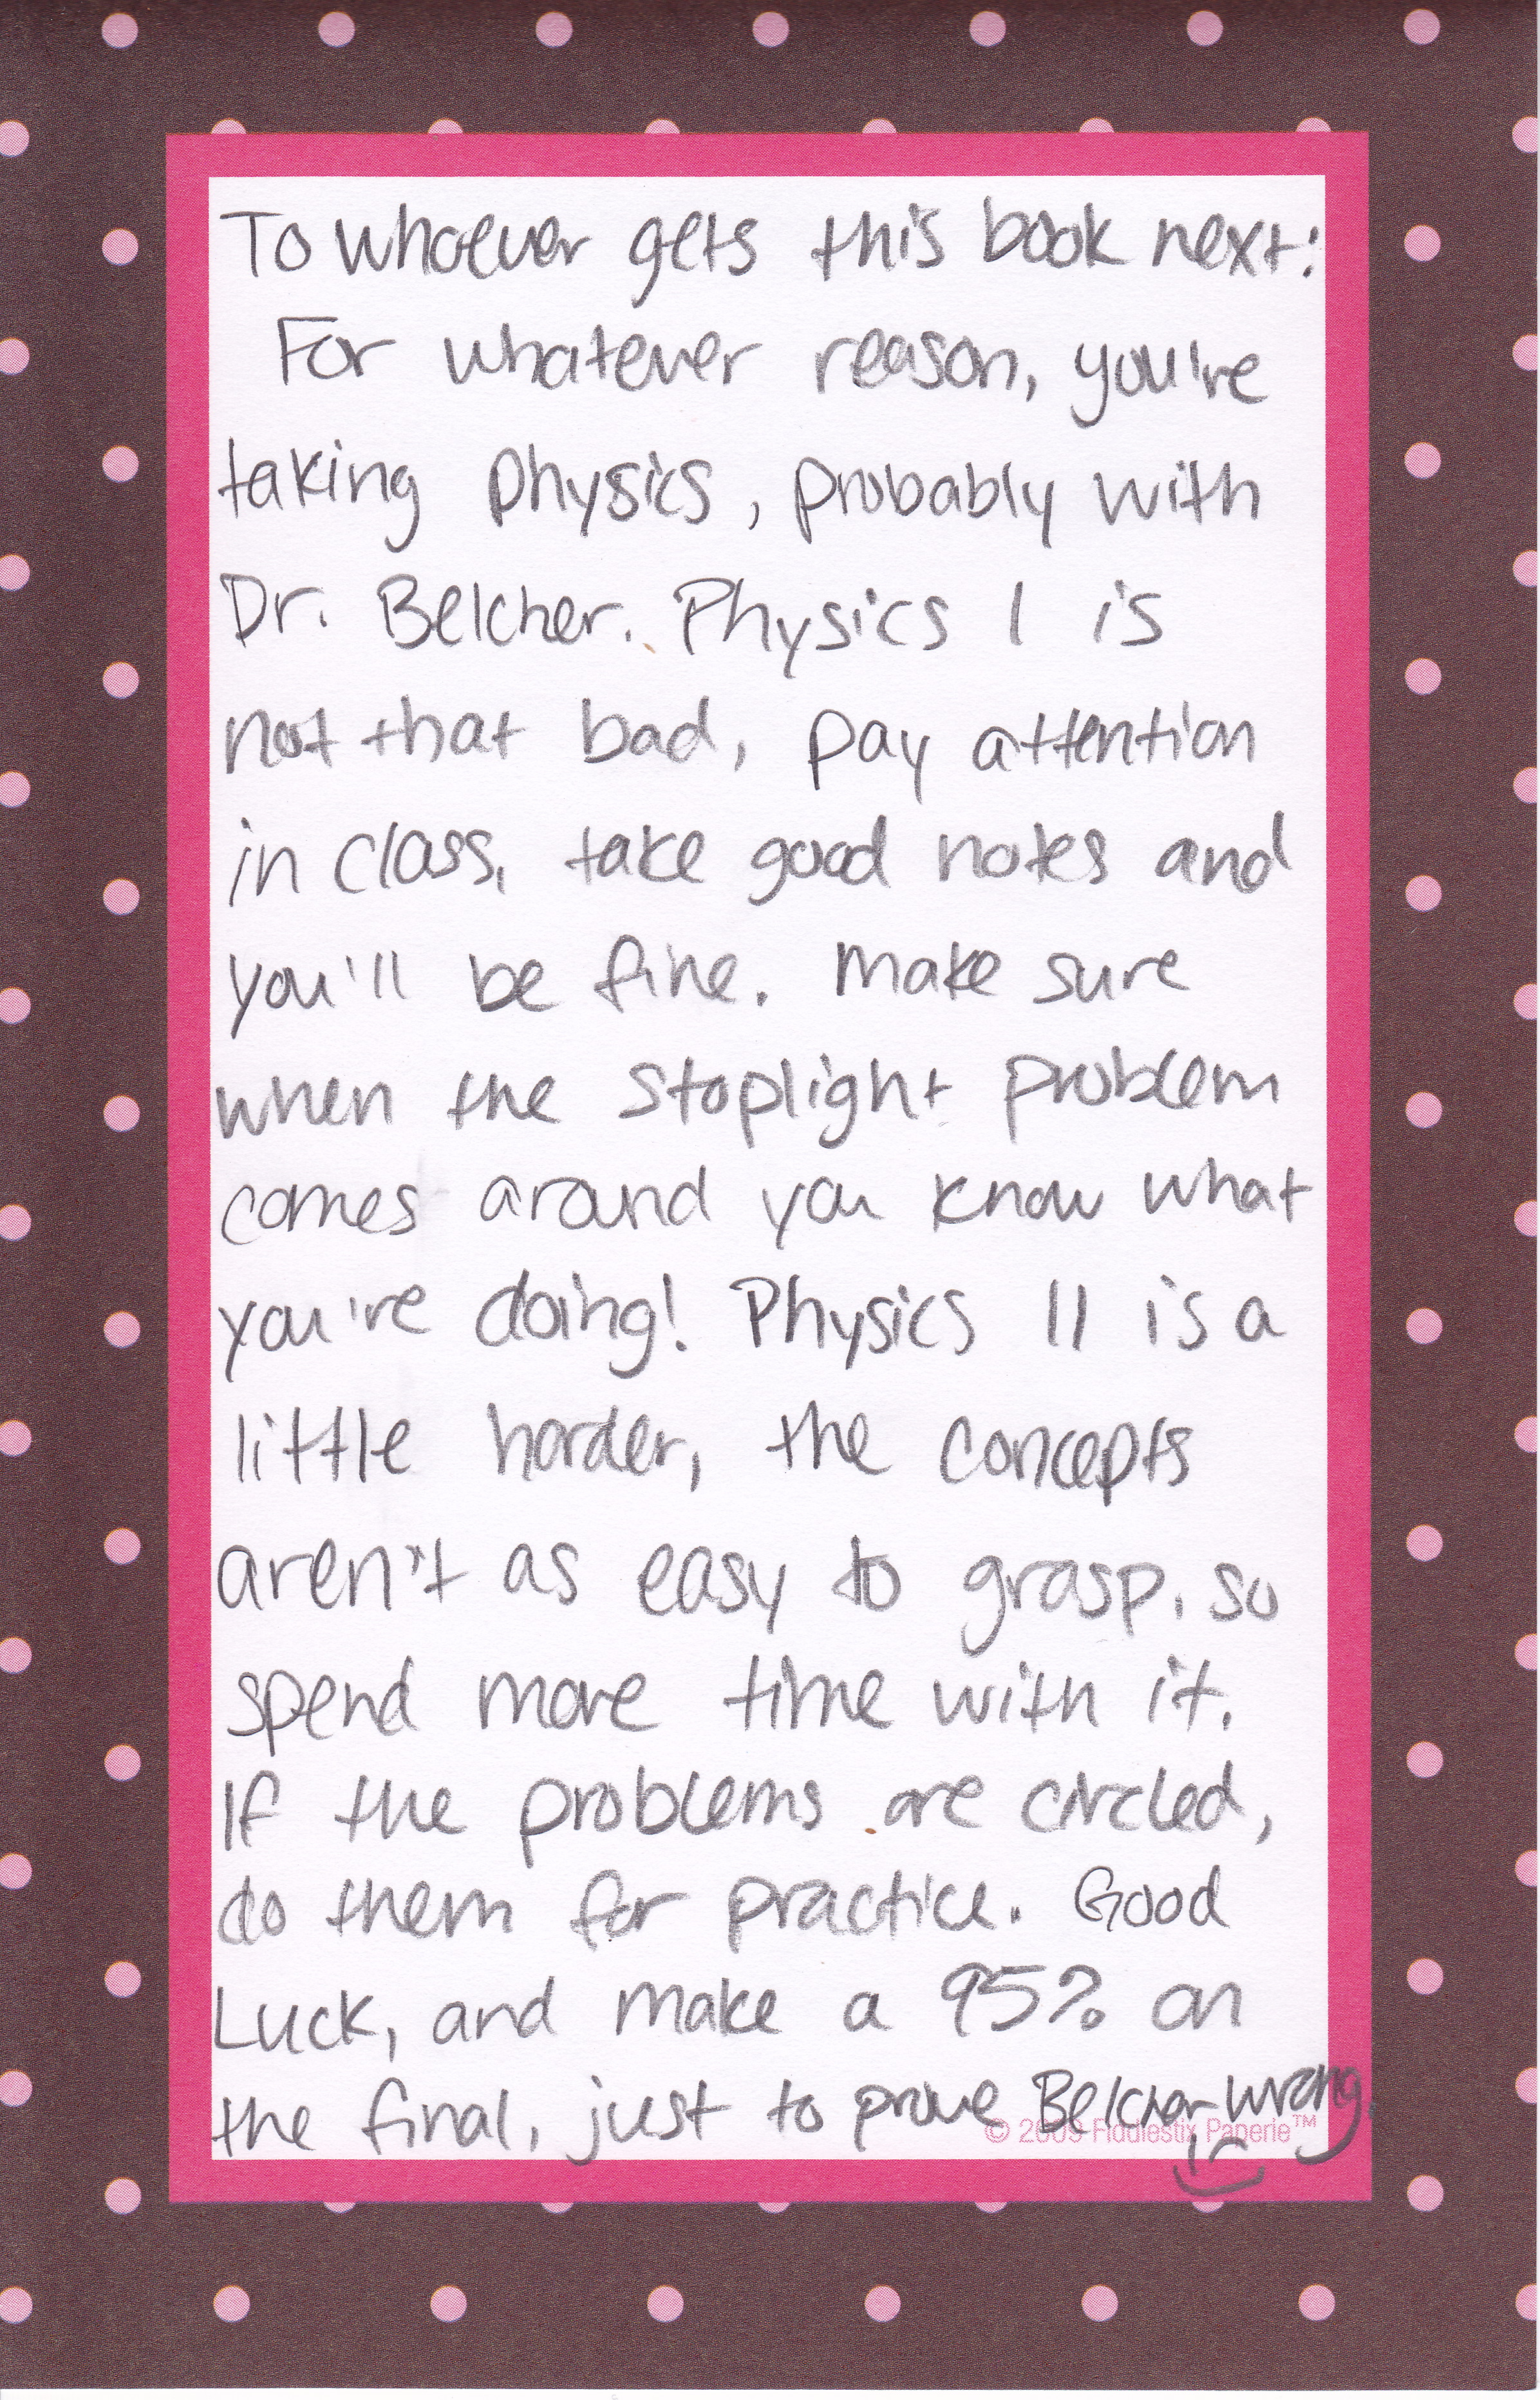 To whoever gets this book next:
For whatever reason, you're
taking physics, probably with
Dr. Belcher. Physics I is
not that bad, pay attention
in class, take good notes and
you'll be fine. Make sure
when the stoplight problem
comes around you know what
you're doing! Physics II is a
little harder, the concepts
aren't as easy to grasp, so
spend more time with it.
If the problems are circled,
do them for practice. Good
Luck, and make a 95% on
the final, just to prove Belcher wrong.
© 2009 Fiddlestix Paperie™